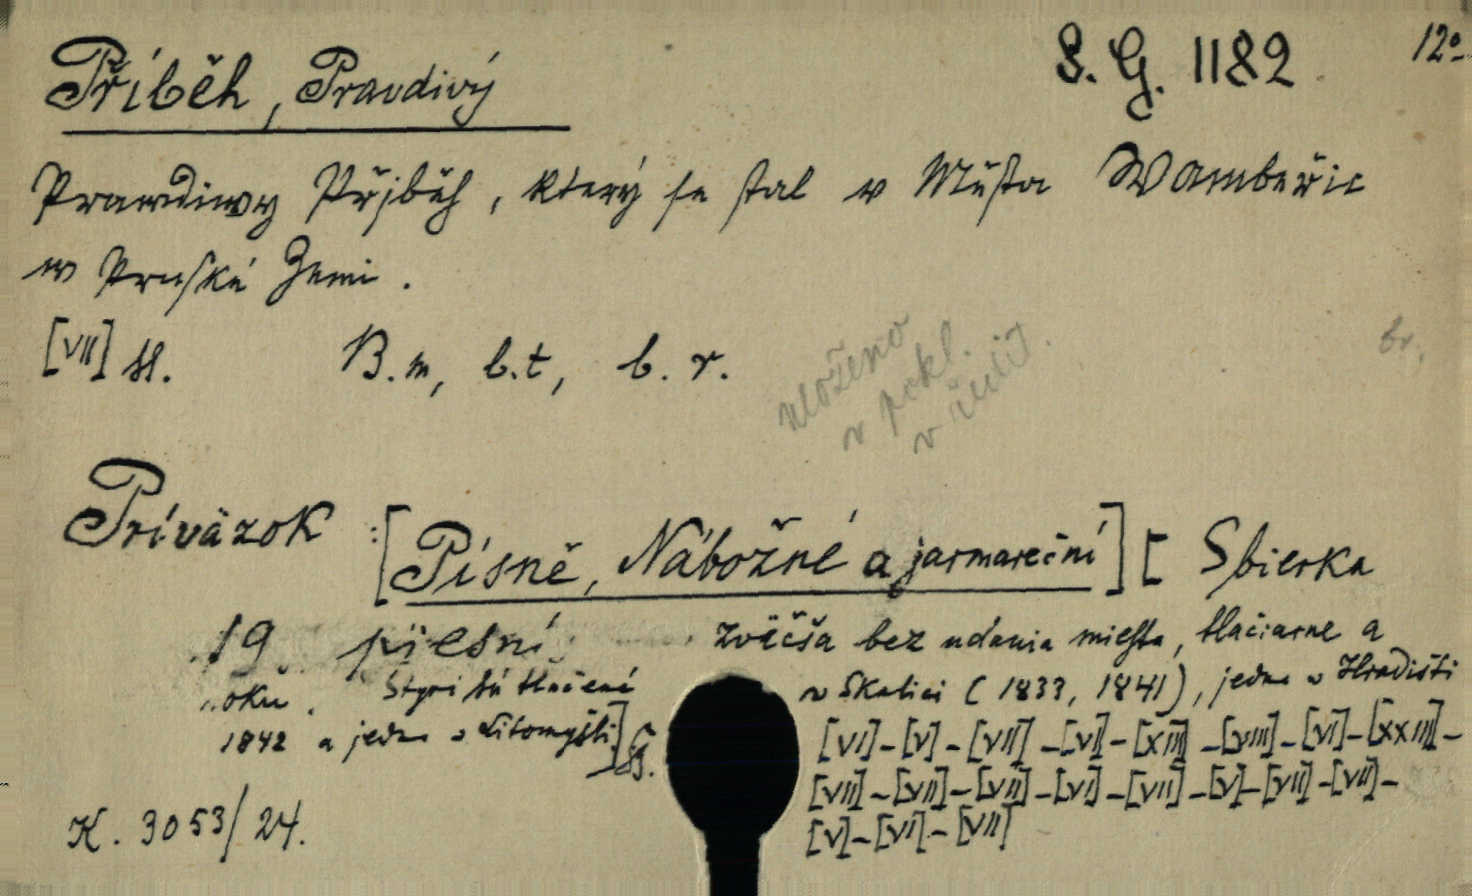 Příběh, Pravdivý S. G. 1182 12°
Prawdiwy Přjběh, který se stal w Města Wambeřic
w Pruské Zemi.
[VII] sl. B.m, b.t, b.r.
uloženo
v pokl.
v
br.
Príväzok: [Písně, Nábožné a jarmareční] [Sbierka
19 piesní zväčša bez udania miesta, tlačiarne a
roku. Štyri sú tlačené v Skalici (1833, 1841), jedna v Hradišti
1842 a jedna v Litomyšli]
[VI]-[V]-[VII]-[VI]-[XIII]-[VIII]-[VI]-[XXIII]-
[VII]-[VII]-[VII]-[VI]-[VII]-[V]-[VII]-[VII]-
[V]-[VI]-[VII]
K. 3053/24.